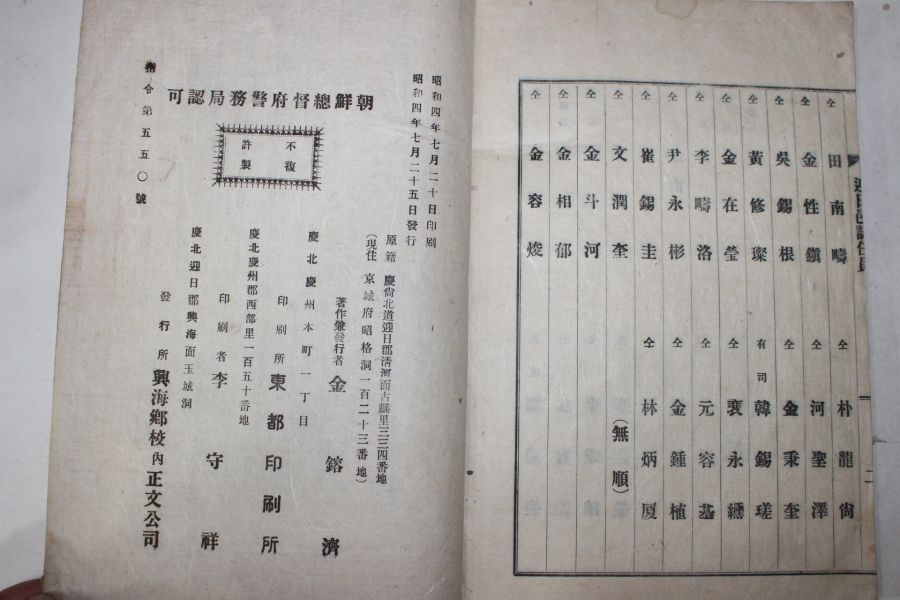 迎日邑誌任員
二
仝 田南疇
仝 金性鎭
仝 吳錫根
仝 黃修璨
仝 金在瑩
仝 李疇洛
仝 尹永彬
仝 崔錫圭
仝 文潤奎
仝 金斗河
仝 金相郁
仝 金容焌
仝 朴龍尙
仝 河聖澤
仝 金秉奎
有司 韓錫瑳
仝 裵永纁
仝 元容基
仝 金鍾植
仝 林炳厦
(無順)
昭和四年七月二十日印刷
昭和四年七月二十五日發行
朝鮮總督府警務局認可
指令第五五〇號
不複
許製
原籍 慶尙北道迎日郡淸河面古縣里三三四番地
(現住 京城府昭格洞一百二十三番地)
著作兼發行者 金鎔濟
慶北慶州本町一丁目
印刷所 東都印刷所
慶北慶州郡西部里一百五十番地
印刷者 李守祥
慶北迎日郡興海面玉城洞
發行所 興海鄕校內正文公司